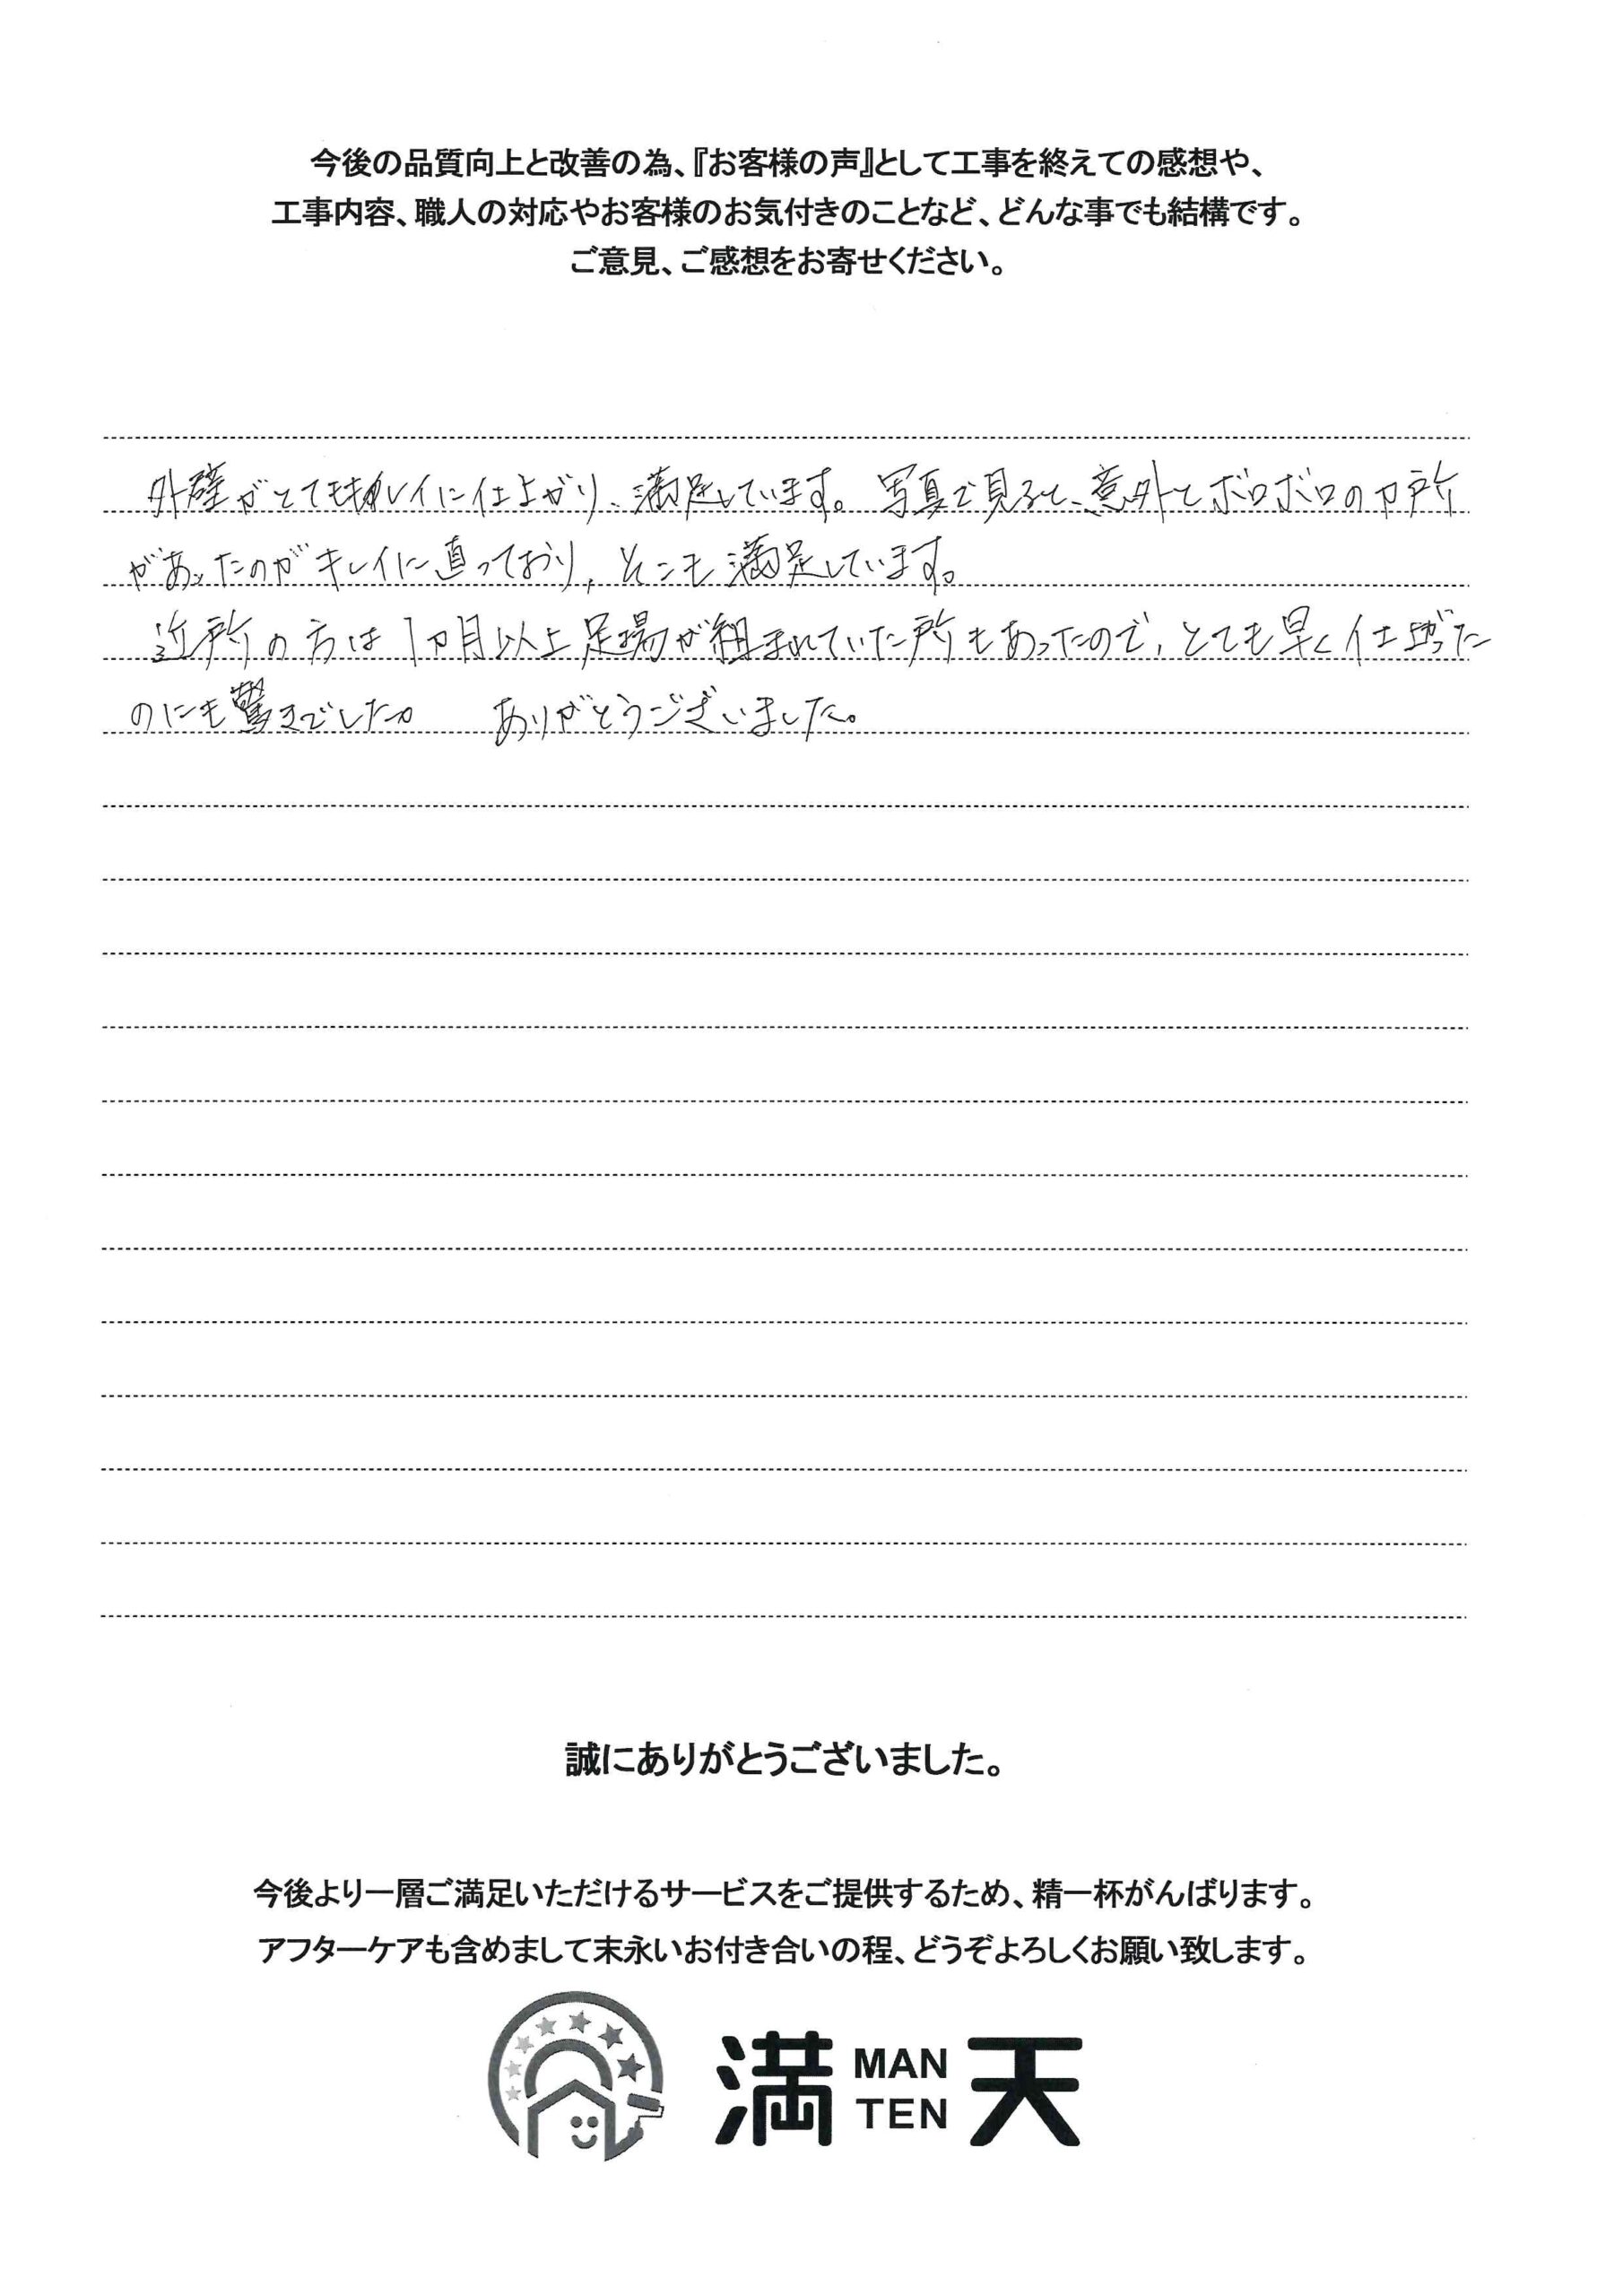 今後の品質向上と改善の為、『お客様の声』として工事を終えての感想や、
工事内容、職人の対応やお客様のお気付きのことなど、どんな事でも結構です。
ご意見、ご感想をお寄せください。
外壁がとてもキレイに仕上がり、満足しています。写真で見ると、意外とボロボロのカ所
があったのがキレイに直っており、そこも満足しています。
近所の方は1カ月以上足場が組まれていた所もあったので、とても早く仕上がった
のにも驚きでした。 ありがとうございました。
誠にありがとうございました。
今後より一層ご満足いただけるサービスをご提供するため、精一杯がんばります。
アフターケアも含めまして末永いお付き合いの程、どうぞよろしくお願い致します。
満 MAN TEN 天